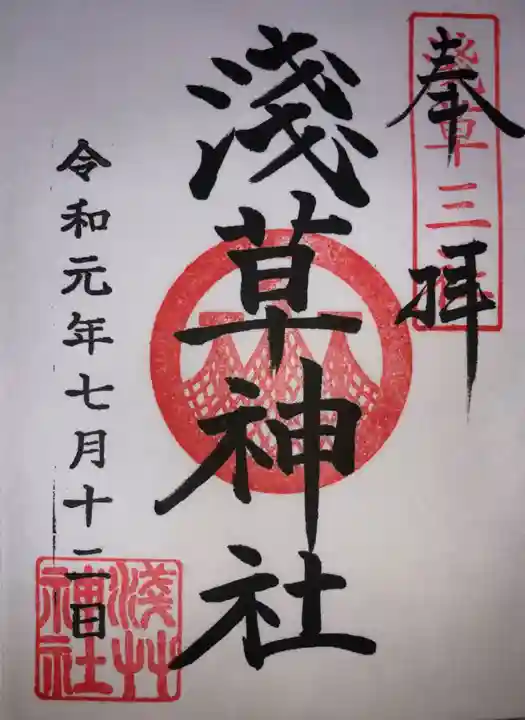 奉拝
淺草三社
淺草神社
令和元年七月十二日
淺草神社